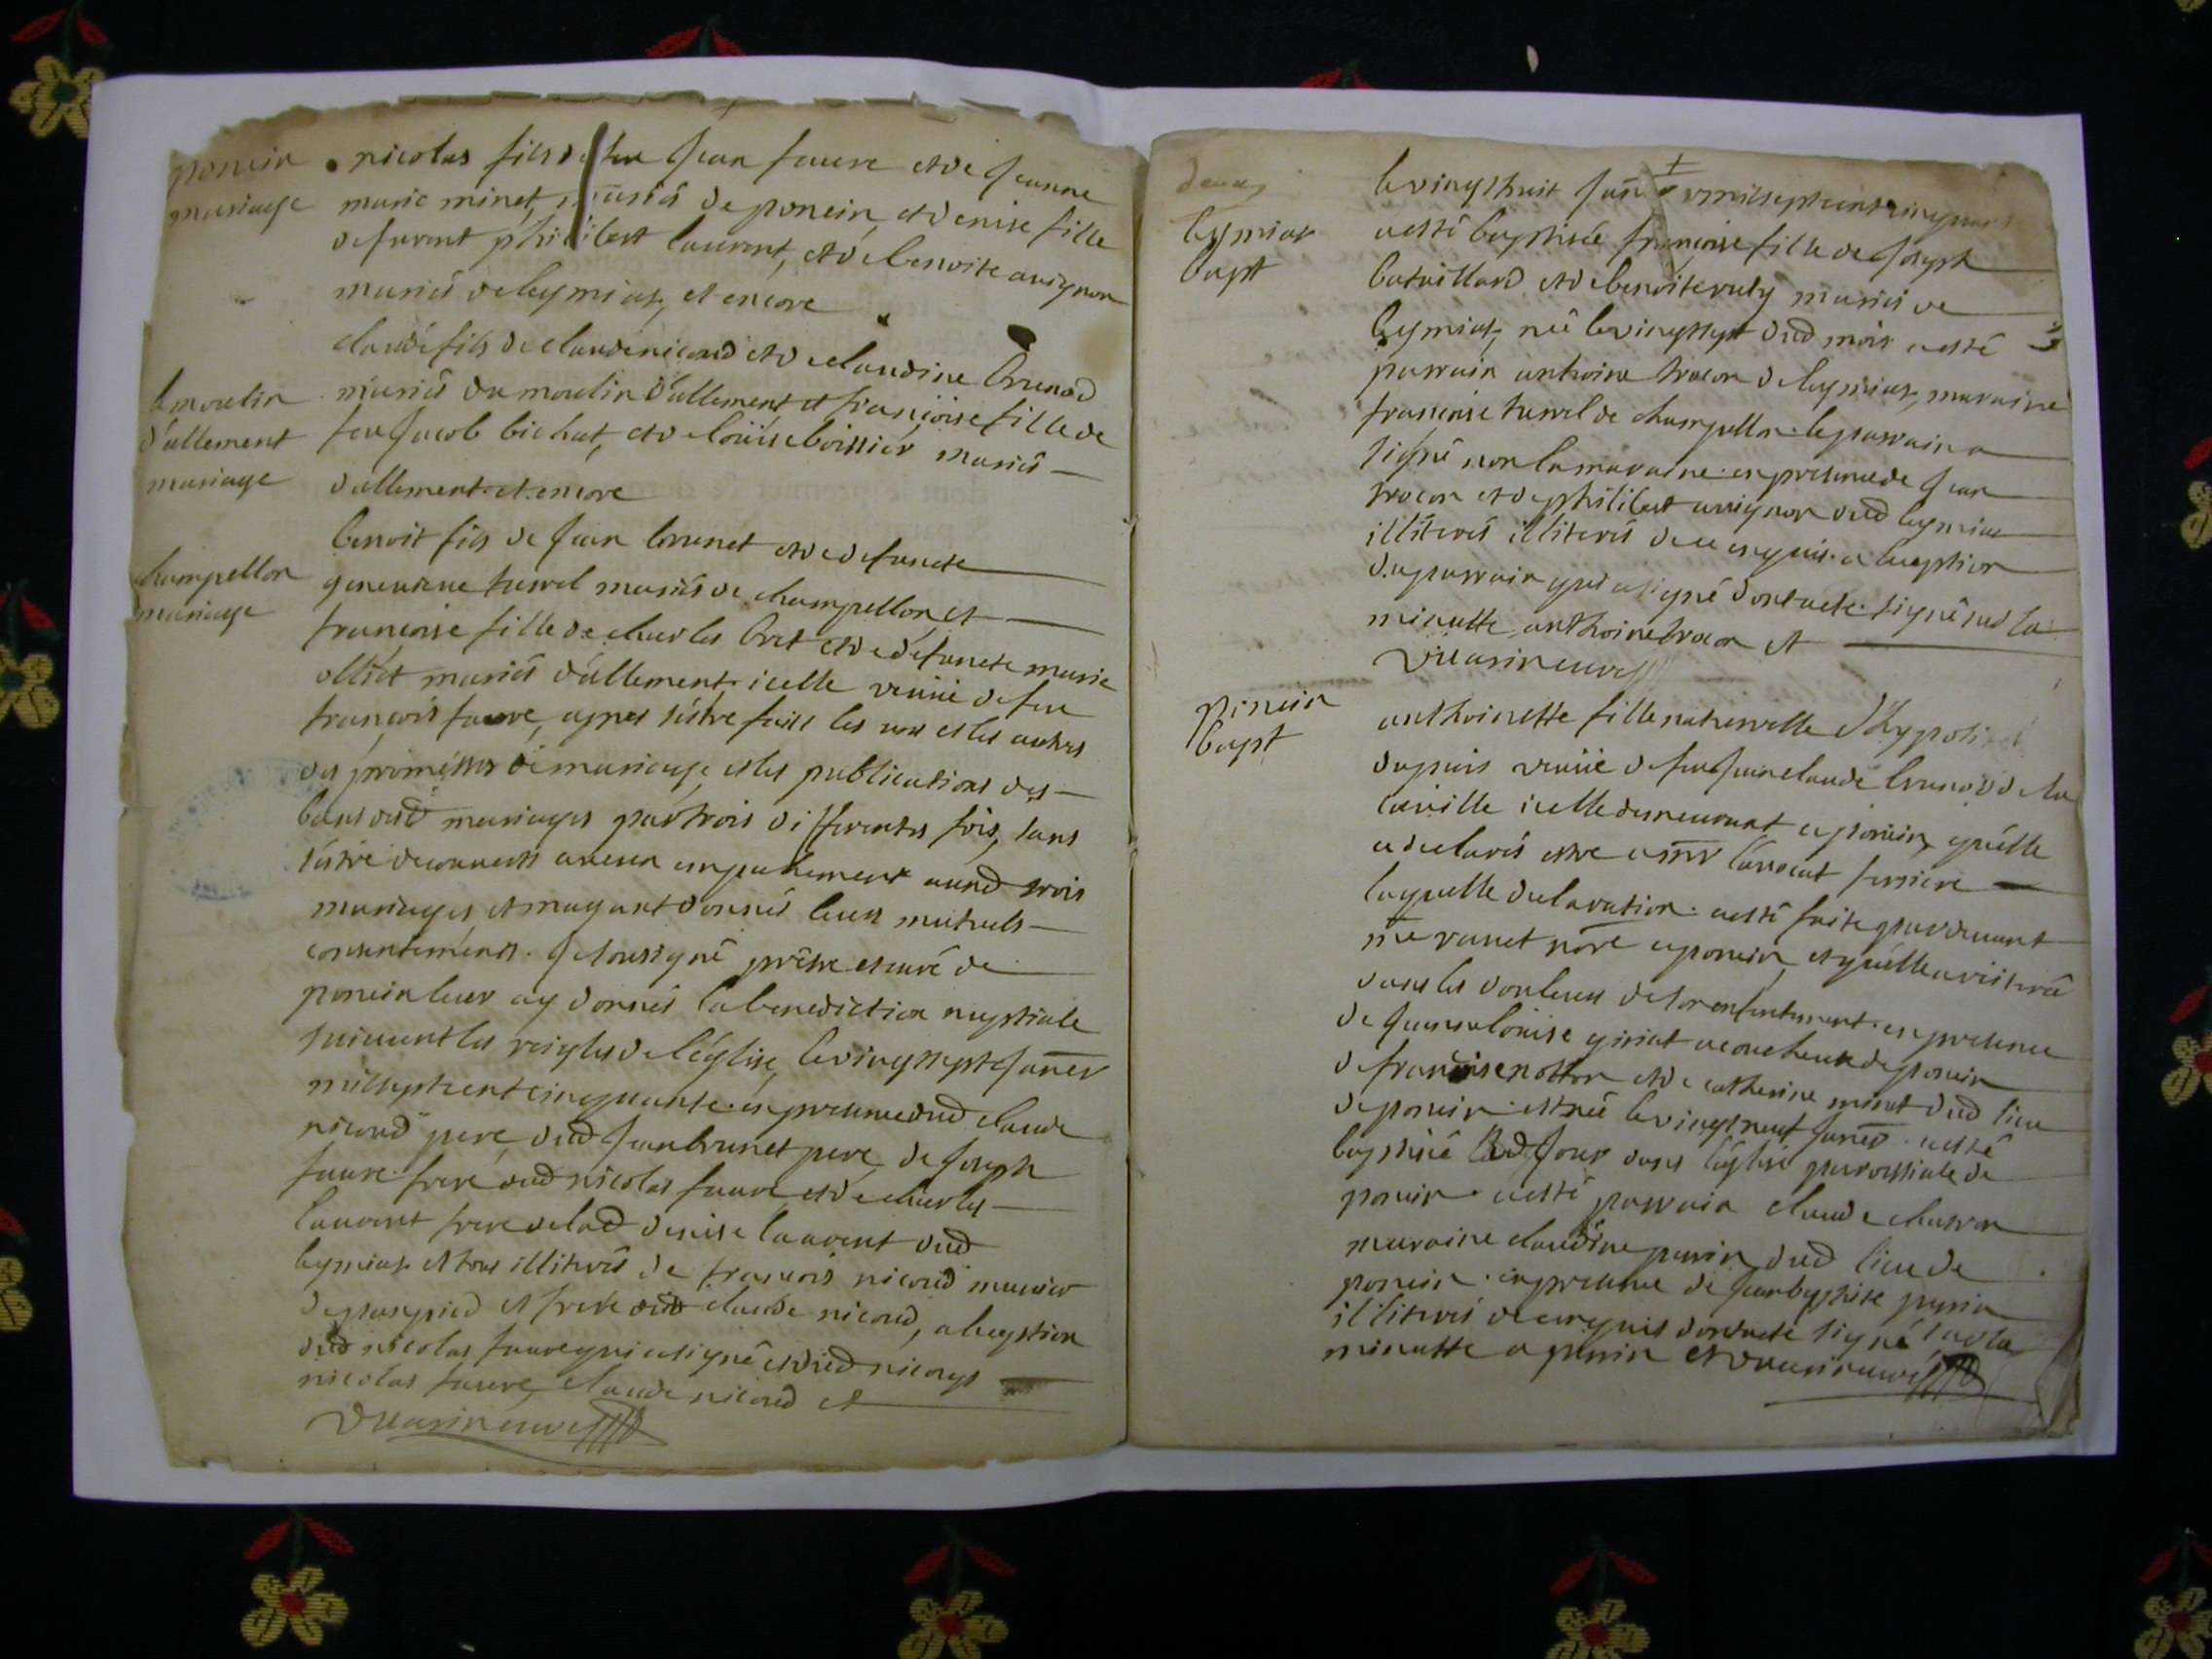 poncin
mariage
nicolas fils de feu Jean faure et de Jeanne
marie minet, mariés de poncin, et denise fille
defurent philibert laurent, et de benoite avignon
mariés de leymiat, et encore
le moulin
d'allement
mariage
claude fils de claude nicoud et de claudine brunod
mariés du moulin d'allement et françoise fille de
feu Jacob bichat, et de loüise boissier mariés
d'allement et encore
champellon
mariage
benoit fils de Jean brunet et de defuncte
genevieve tuvel mariés de champellon, et
françoise fille de charles bret et de défuncte marie
olliet mariés d'allement icelle veuüe de feu
françois faure, apres s'éstre faits les uns et les autres
des promésses de mariage, et les publications des
bans desd mariages par trois differentes fois, sans
s'éstre decouverts aucun empechement auxd trois
mariages, et m'ayant donnés leurs mutuels
consentements. Je soussigné prêtre et curé de
poncin leur ay donnés la benediction nuptiale
suivant les reigles de l'église, le vingtsept Janer
milseptcent cinquante en presence dud claude
nicoud pere, dud Jean brunet pere, de Joseph
faure frere dud nicolas faure, et de charles
laurent frere de lad denise laurent dud
leymiat et tous illiterés de françois nicoud
et frere dud claude nicoud, a l'exeption
dud nicolas faure qui a signé et dud nicouds
nicolas faure, claude nicoud et
leymiat
bapt
le vingthuit Janer milseptcent cinquante
a esté baptisée françoise fille de Joseph
bataillard et de benoite ruty mariés de
leymiat, née le vingtsept dud mois a esté
parrain anthoine trocon de leymiat, maraine
françoise tuvel de champellon. le parrain a
signé non la maraine en presence de Jean
trocon et de philibert avignon dud leymiat
illiterés illiterés de ce enquis a l'exeption
du parrain qui a signé dont acte signé sud la
minutte anthoine trocon et
poncin
bapt
anthoinette fille naturelle d'hypolite
dupuis veuüe de feu Jean claude brunod de la
cueille icelle demeurant a poncin, qu'elle
a declarés estre a mr l'avocat
laquelle declaration a esté faite pardevant
me vanet nore a poncin, et qu'elle a reiterée
dans les douleurs de son enfantement en presence
de Jeanne loüise giriat accoucheuse de poncin
de françoise notton et de catherine minet dud lieu
de poncin est née le vingtneuf Janer a esté
baptisée led Jour dans l'église parroissiale de
poncin a esté parrain claude charvon
maraine claudine perrin dud lieu de
poncin en presence de Jean baptiste perrin
illiterés de ce enquis dont acte signé sud la
minutte a perrin et